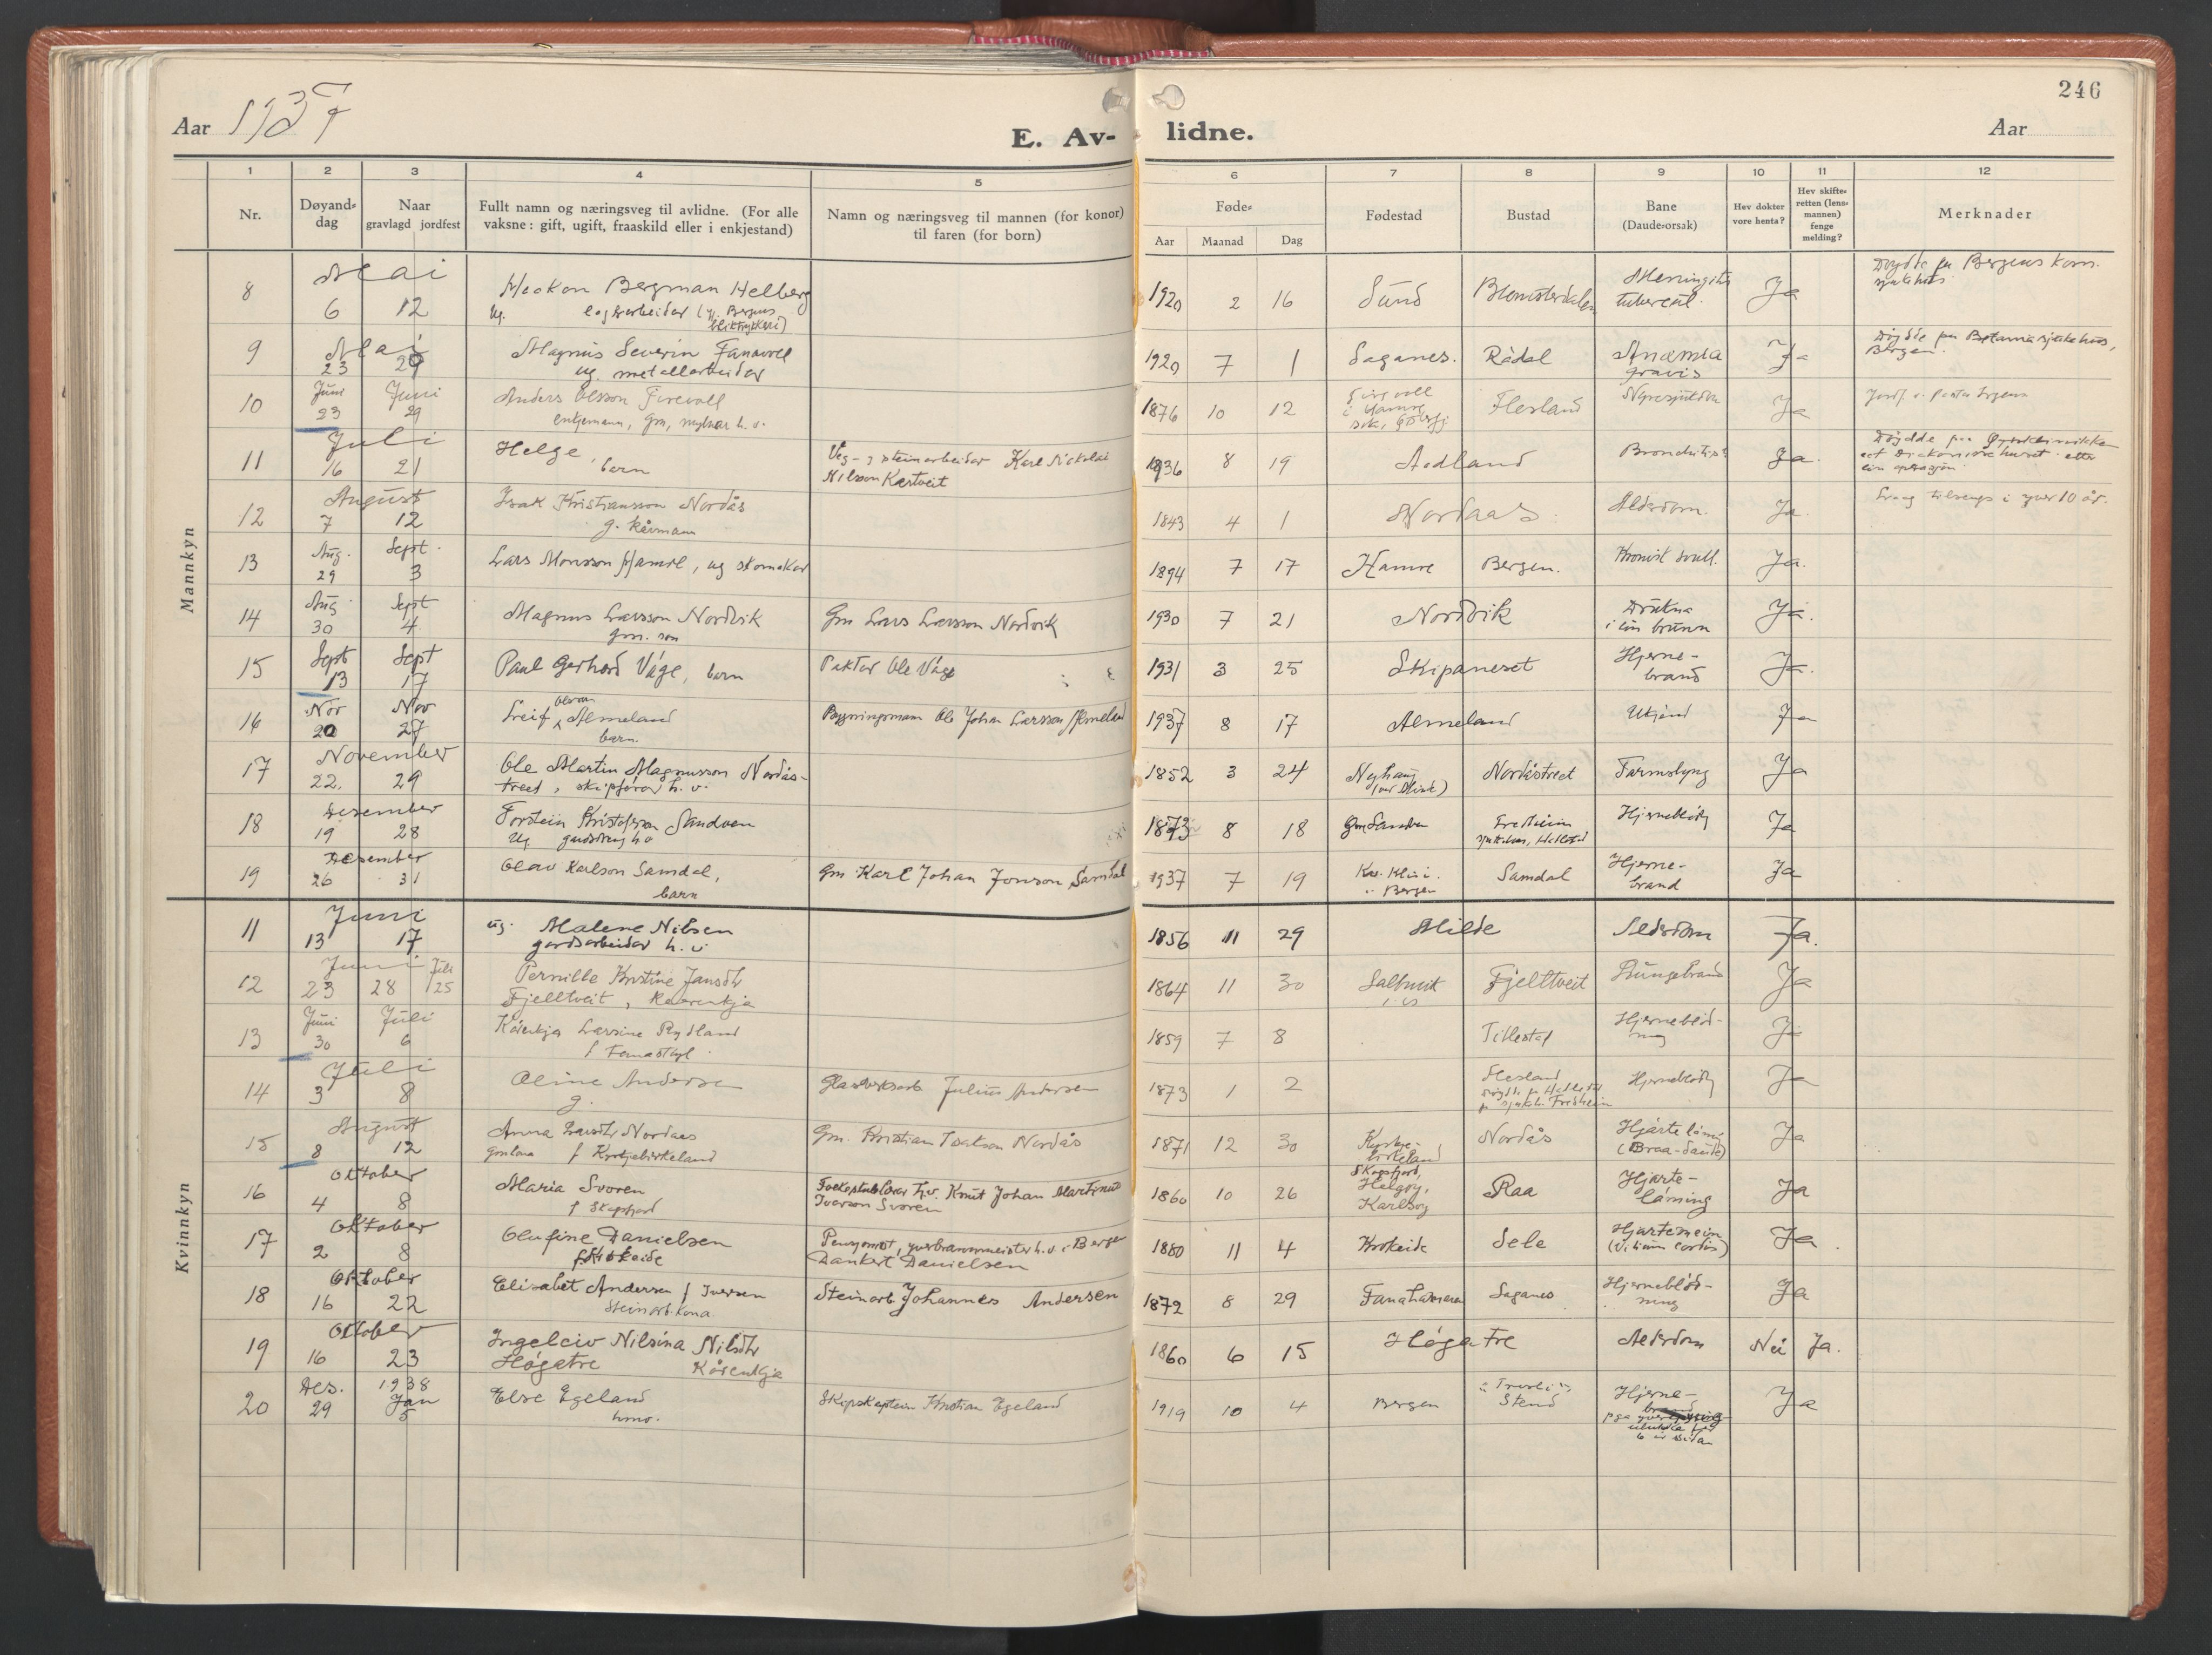 246
Aar 1937
E. Av-lidne.
Aar
1 2 3 4 5 6 7 8 9 10 11 12
Nr.
Døyand-dag
Naar gravlagd jordfest
Fullt namn og næringsveg til avlidne. (For alle vaksne: gift, ugift, fraaskild eller i enkjestand)
Namn og næringsveg til mannen (for konor) til faren (for born)
Føde-
Aar Maanad Dag
Fødestad
Bustad
Bane (Daude-orsak)
Hev dokter vore henta?
Hev skifte-retten (lens-mannen) fenge melding?
Merknader
Mannkyn
Mai
8 6 12 Haakon Bergman Helberg 1920 2 16 Sund Blomsterdalen Meningitis tubercul. Ja Døydde på Bergens kom. sjukehus
ug. lagerarbeidar (v. Bergens bliktrykkeri)
Mai
9 23 29 Magnus Severin Fanavoll 1920 7 1 Saganes. Rådal Anæmia gravis Ja Døydde på Betania sjukehus, Bergen.
ug. metallarbeidar
Juni Juni
10 23 29 Anders Olsson Firevoll 1876 10 12 i Hamre Flesland Ja
enkjemann, gm,
Juli
11 16 21 Helge, barn Veg- og steinarbeidar Karl Nickolai Nilsson Kartveit 1936 8 19 Aadland Ja. Døydde paa etter ein operasjon
August
12 7 12 Isak Kristiansson Nordås 1843 4 1 Nordaas Alderdom. Ja. Sæng i yver 10 år.
g. kårmann
Aug. Sept.
13 29 3 Lars Monsson Hamre, ug skomakar 1894 7 17 Hamre Bergen. Ja.
Aug Sept
14 30 4 Magnus Larsson Nordvik Gm Lars Larsson Nordvik 1930 7 21 Nordvik Drukna i ein brunn Ja.
gm. son
Sept Sept
15 13 17 Paul Gerhard Våge, barn Pastor Ole Våge 1931 3 25 Skipaneset Hjerne-brand Ja.
Nov Nov
16 20 27 Leif Olsson Almeland Bygningsmann Ole Johan Larsson Almeland 1937 8 17 Almeland Ukjend Ja
barn.
November
17 22. 29 Ole Martin Magnusson Nordås- 1852 3 24 Nordåstreet Tarmslyng Ja
treet, skipsførar h.v.
Desember
18 19 28 Torstein Kristoferson Sandven 8 18 Sandven Fredheim sjukehus, Hatlestad Hjernebløding Ja
ug. gardsdreng h.v
Desember
19 26 31 Olav Karlson Samdal, Gm Karl Johan Jonson Samdal 1937 7 19 Kv. Klin. i Bergen Samdal Hjerne-brand Ja
barn
Kvinnkyn
Juni
11 13 17 ug. Malene Nilsen 1856 11 29 Milde Alderdom Ja.
gardsarbeidar h.v
Juni Juli
12 23 28 25 Pernille Kristine Jansdtr 1864 11 30 Fjelltveit Lungebrand Ja
Fjelltveit, Kaarenkja
Juni Juli
13 30 6 Kårenkja Larsine Rydland 1859 7 8 Titlestad Hjerneblød-ning Ja
f
Juli
14 3 8 Oline Andersen Glasverksarb Julius Andersen 1873 1 2 Flesland sjukh. Fredheim Hjernebløding Ja
g.
August
15 8 12 Anna Larsdtr Nordaas Gm. Kristian Isakson Nordås 1871 12 30 Kyrkje-birkeland Nordås Hjarte låming (Braa-daude) Ja
Gmkona f Kyrkjebirkeland
Oktober
16 4 8 Maria Svoren h.v. Knut Johan Martinus Iverson Svoren 1860 10 26 Skogsfjord, Helgøy, Karlsøy Raa Hjarte-låming Ja
f Skogsfjord
Oktober
17 2 8 Olufine Danielsen Pensjonist, yverbrannmeister h.v. i Bergen Dankert Danielsen 1880 11 4 Krokeide Sele Hjartemein (Vitium cordis) Ja.
f. Krokeide
Oktober
18 16 22 Elisabet Andersen f Iversen Steinarb Johannes Andersen 1872 8 29 Fanahammaren Saganes Hjerneblød-ning Ja
Steinarb kona
Oktober
19 16 23 Ingeleiv Nilsina Nilsdtr 1860 6 15 Høgatre Alderdom Nei Ja.
Høgatre Kårenkja
Des. 1938 Jan
20 29 5 Else Egeland Skipskaptein Kristian Egeland 1919 10 4 Bergen Stend Hjerne- Ja